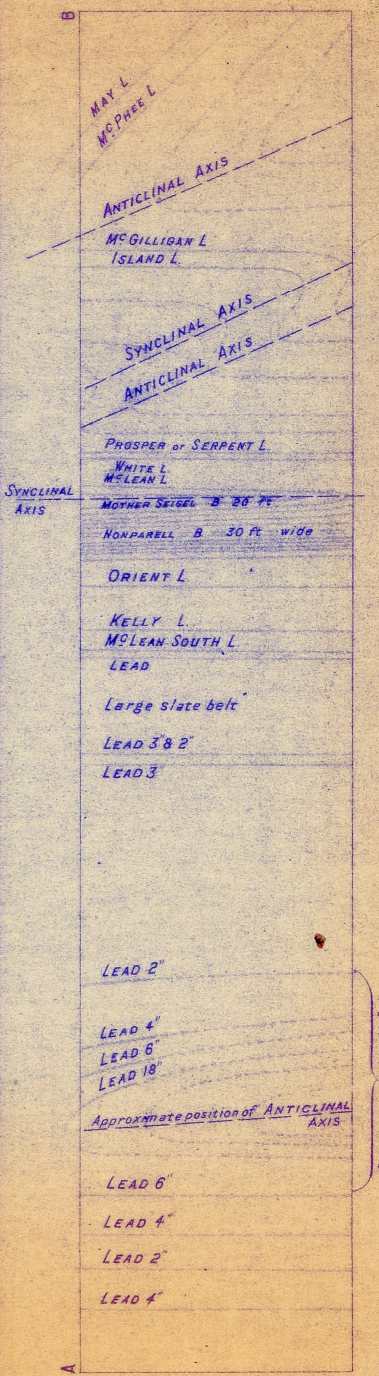 B
MAY L
McPHEE L
ANTICLINAL AXIS
McGILLIGAN L
ISLAND L.
SYNCLINAL AXIS
ANTICLINAL AXIS
PROSPER or SERPENT L.
WHITE L
McLEAN L
SYNCLINAL
AXIS
MOTHER SEIGEL B 20 ft
NONPARELL B 30 ft wide
ORIENT L
KELLY L.
McLEAN SOUTH L
LEAD
Large slate belt
LEAD 3" & 2"
LEAD 3"
LEAD 2"
LEAD 4"
LEAD 6"
LEAD 18"
Approximate position of ANTICLINAL
AXIS
LEAD 6"
LEAD 4"
LEAD 2"
LEAD 4"
A